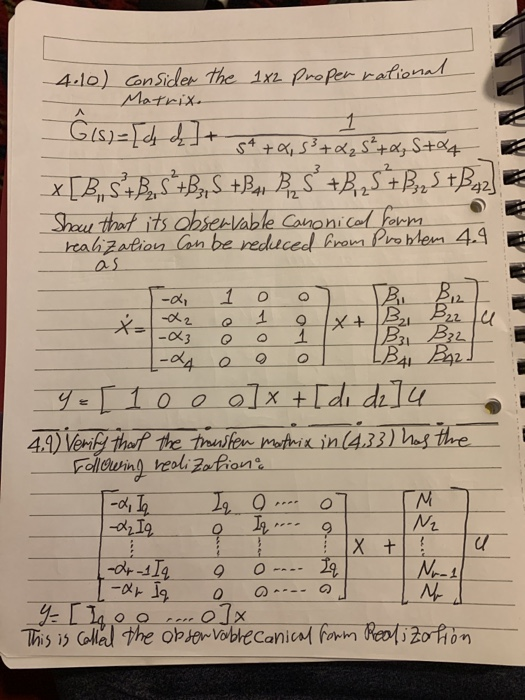 4.10) Consider the 1x2 Proper rational
Matrix.
Ĝ(s)=[d₁ d₂]+ 1 / s⁴ + α₁ s³ + α₂ s² + α₃ s + α₄
x [B₁₁ s³+B₂₁ s²+B₃₁ s +B₄₁ B₁₂ s³ +B₁₂ s²+B₃₂ s +B₄₂]
Show that its observable Canonical form
realization Can be reduced from Problem 4.9
as
ẋ = [-α₁ 1 0 0; -α₂ 0 1 0; -α₃ 0 0 1; -α₄ 0 0 0] x + [B₁₁ B₁₂; B₂₁ B₂₂; B₃₁ B₃₂; B₄₁ B₄₂] u
y = [1 0 0 0] x + [d₁ d₂] u
4.9) Verify that the transfer matrix in (4.33) has the
Following realization:
[-α₁ Iq Iq 0 .... 0; -α₂ Iq 0 Iq .... 0; ⋮ ⋮ ⋮ ⋮; -αr-1 Iq 0 0 .... Iq; -αr Iq 0 0 .... 0] x + [N₁; N₂; ⋮; Nr-1; Nr] u
y= [Iq 0 0 .... 0] x
This is Called the observable canical form Realization